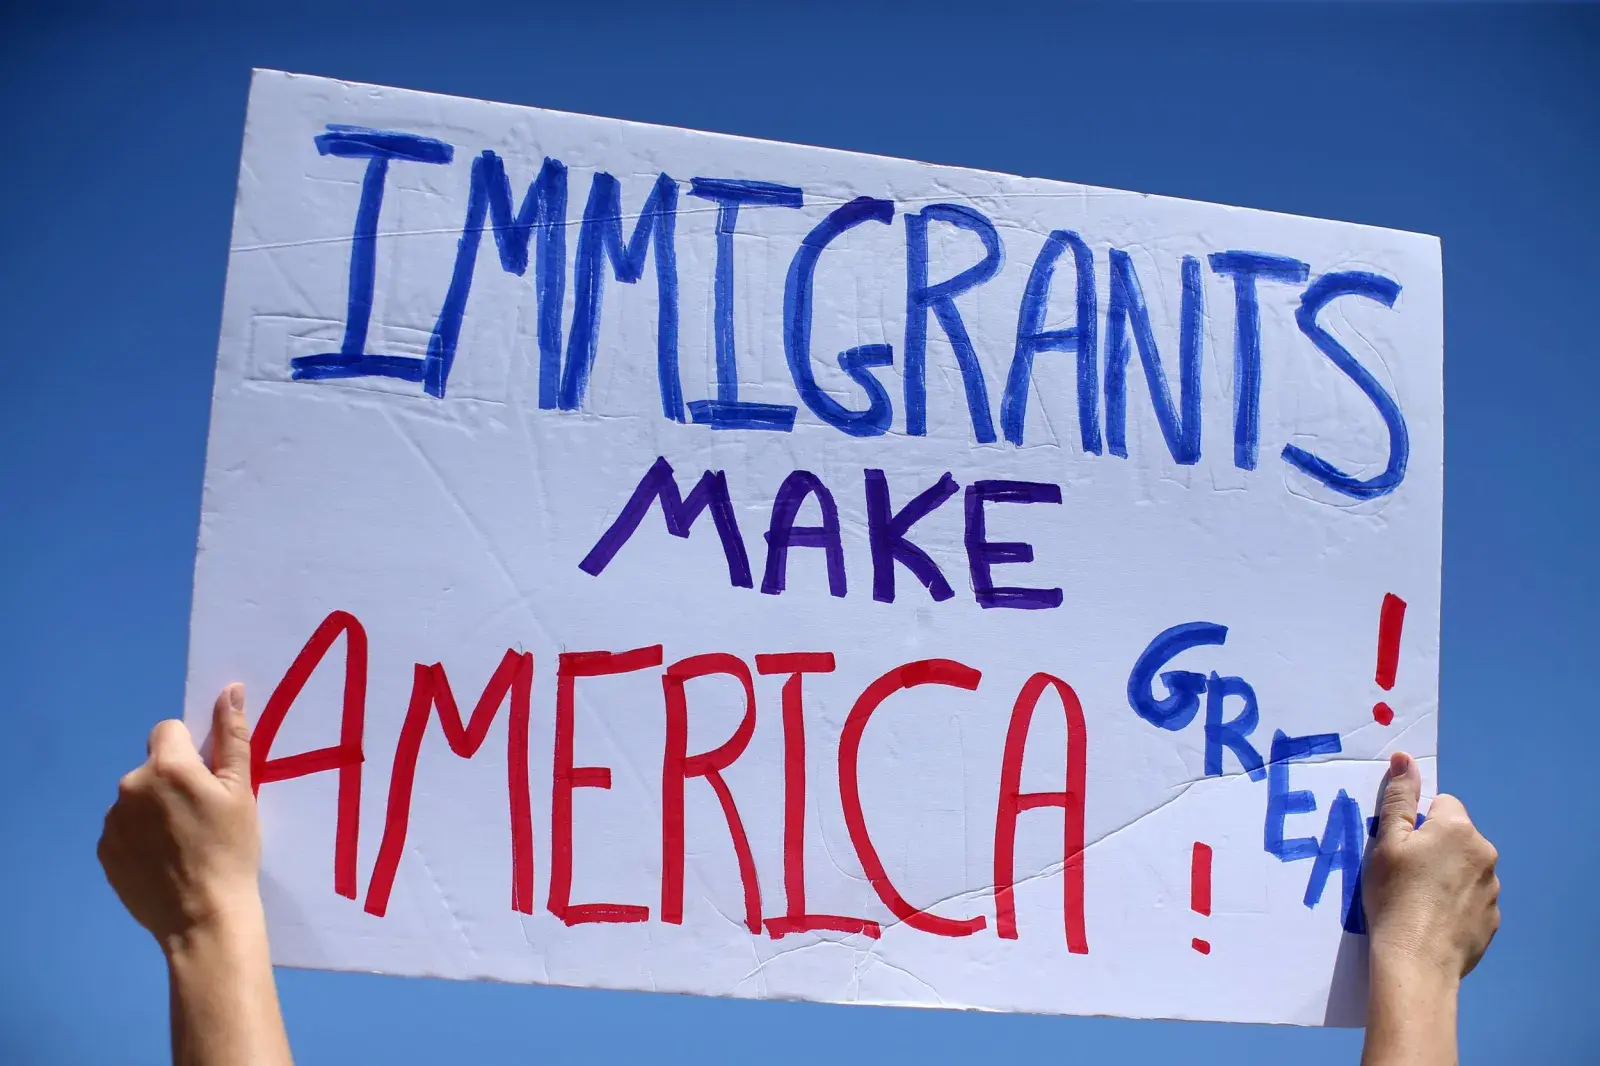 IMMIGRANTS
MAKE
AMERICA GREAT
! !